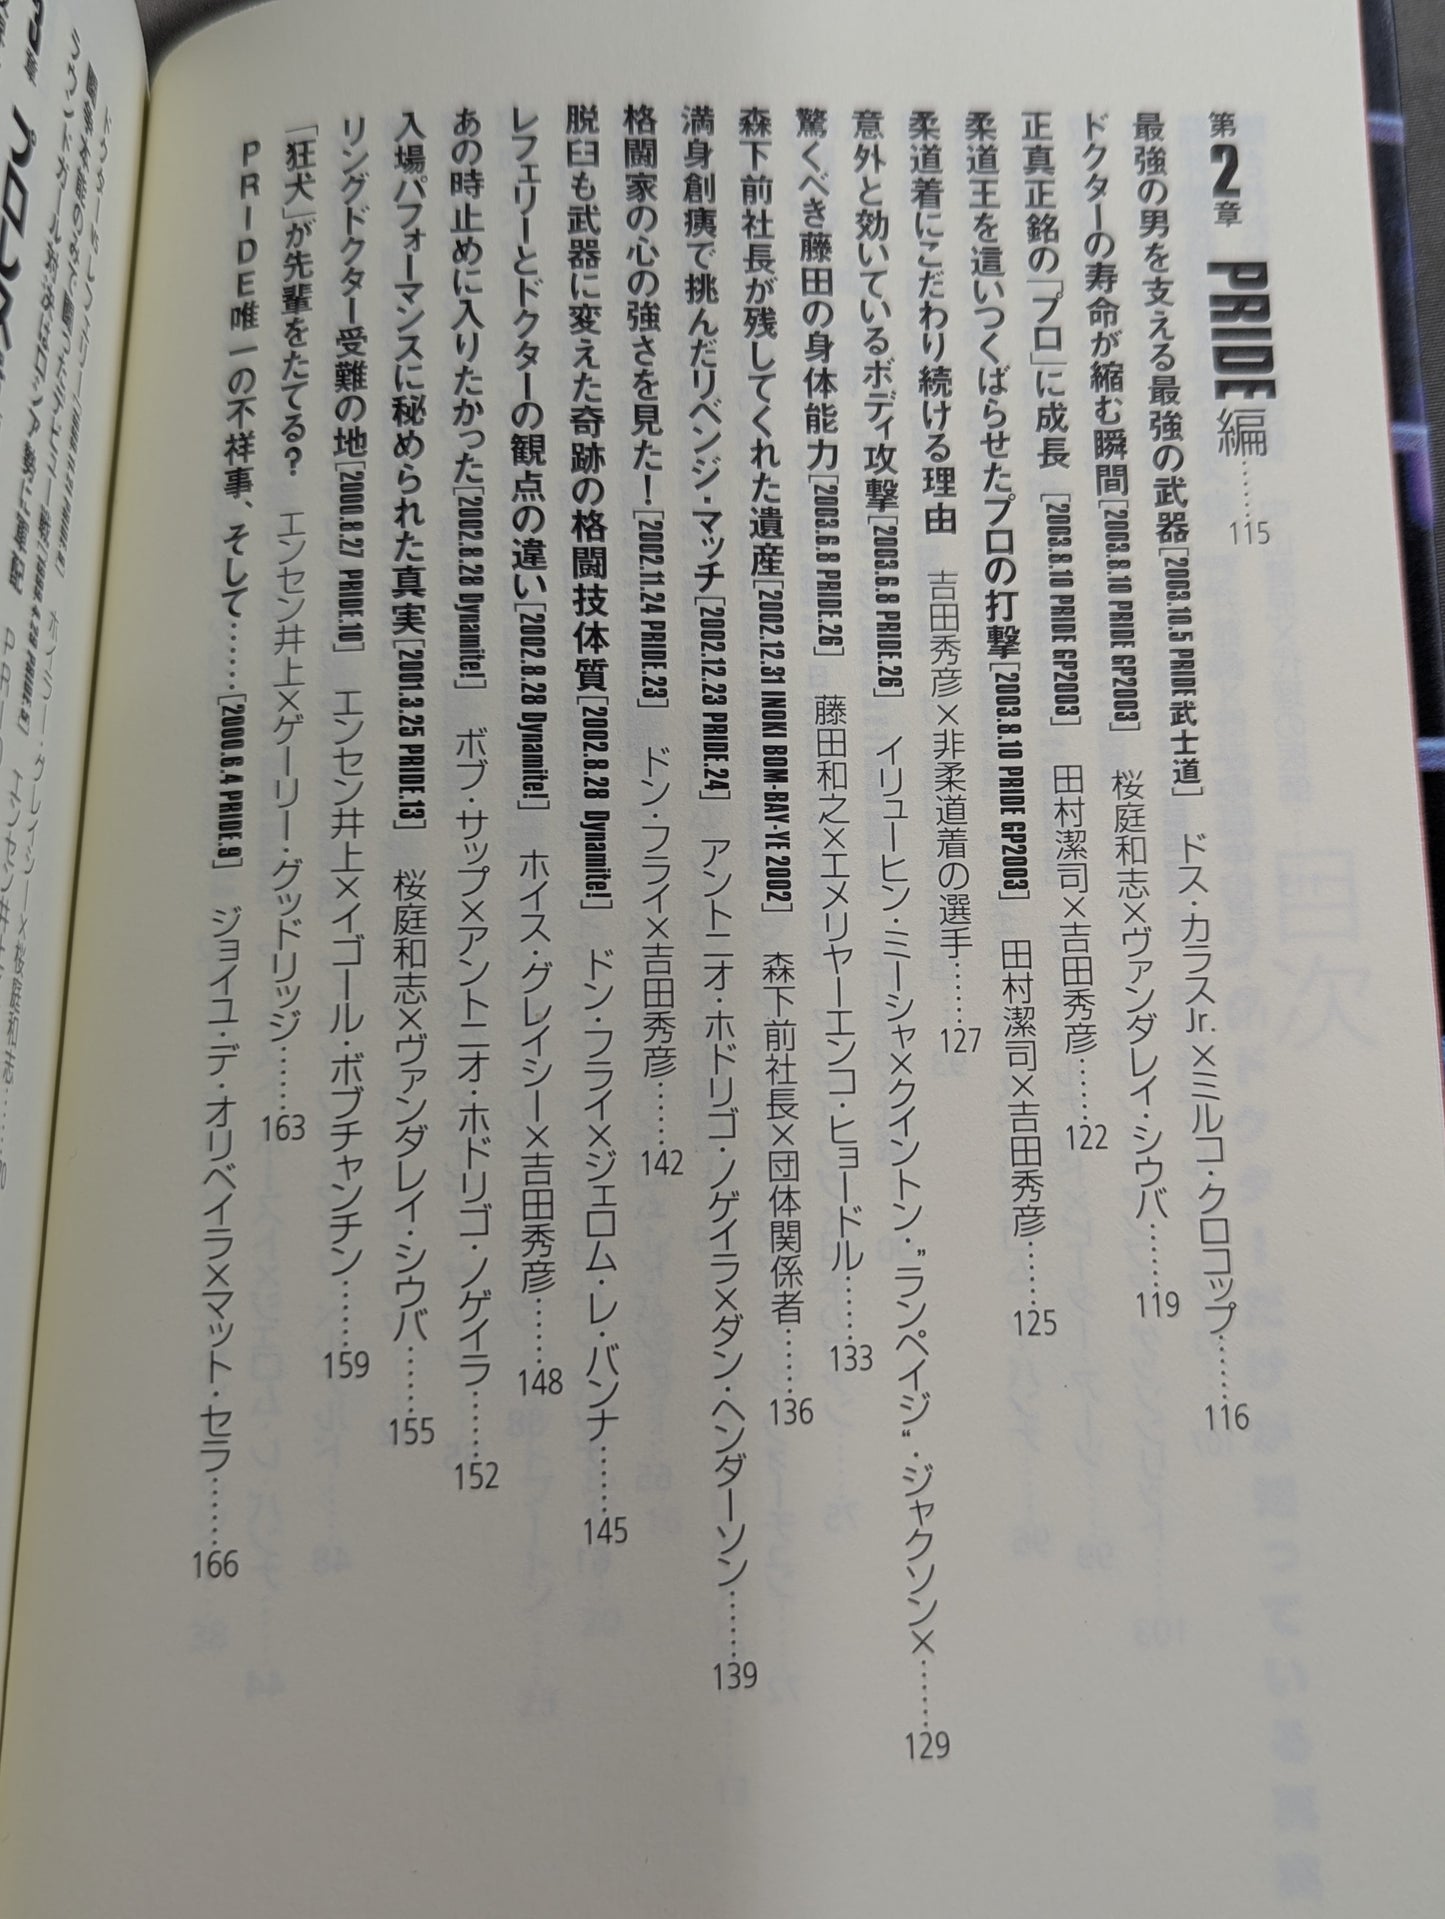 第2章 PRIDE編……115
最強の男を支える最強の武器[2003.10.5 PRIDE 武士道] ドス・カラスJr.×ミルコ・クロコップ……116
ドクターの寿命が縮む瞬間[2003.8.10 PRIDE GP2003] 桜庭和志×ヴァンダレイ・シウバ……119
正真正銘の「プロ」に成長 [2003.8.10 PRIDE GP2003] 田村潔司×吉田秀彦……122
柔道王を這いつくばらせたプロの打撃[2003.8.10 PRIDE GP2003] 田村潔司×吉田秀彦……125
柔道着にこだわり続ける理由 吉田秀彦×非柔道着の選手……127
意外と効いているボディ攻撃[2003.6.8 PRIDE.26] イリューヒン・ミーシャ×クイントン・”ランペイジ“・ジャクソン×……129
驚くべき藤田の身体能力[2003.6.8 PRIDE.26] 藤田和之×エメリヤーエンコ・ヒョードル……133
森下前社長が残してくれた遺産[2002.12.31 INOKI BOM-BAY-YE 2002] 森下前社長×団体関係者……136
満身創痍で挑んだリベンジ・マッチ[2002.12.23 PRIDE.24] アントニオ・ホドリゴ・ノゲイラ×ダン・ヘンダーソン……139
格闘家の心の強さを見た！[2002.11.24 PRIDE.23] ドン・フライ×吉田秀彦……142
脱臼も武器に変えた奇跡の格闘技体質[2002.8.28 Dynamite!] ドン・フライ×ジェロム・レ・バンナ……145
レフェリーとドクターの観点の違い[2002.8.28 Dynamite!] ホイス・グレイシー×吉田秀彦……148
あの時止めに入りたかった[2002.8.28 Dynamite!] ボブ・サップ×アントニオ・ホドリゴ・ノゲイラ……152
入場パフォーマンスに秘められた真実[2001.3.25 PRIDE.13] 桜庭和志×ヴァンダレイ・シウバ……155
リングドクター受難の地[2000.8.27 PRIDE.10] エンセン井上×イゴール・ボブチャンチン……159
「狂犬」が先輩をたてる？ エンセン井上×ゲーリー・グッドリッジ……163
PRIDE唯一の不祥事、そして……[2000.6.4 PRIDE.9] ジョイユ・デ・オリベイラ×マット・セラ……166